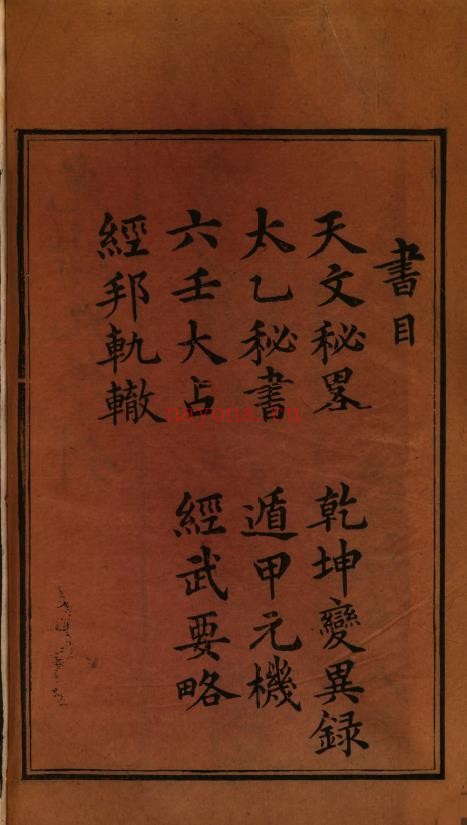 書目
天文秘畧 乾坤變異録
太乙秘書 遁甲元機
六壬大占 經武要略
經邦軌轍